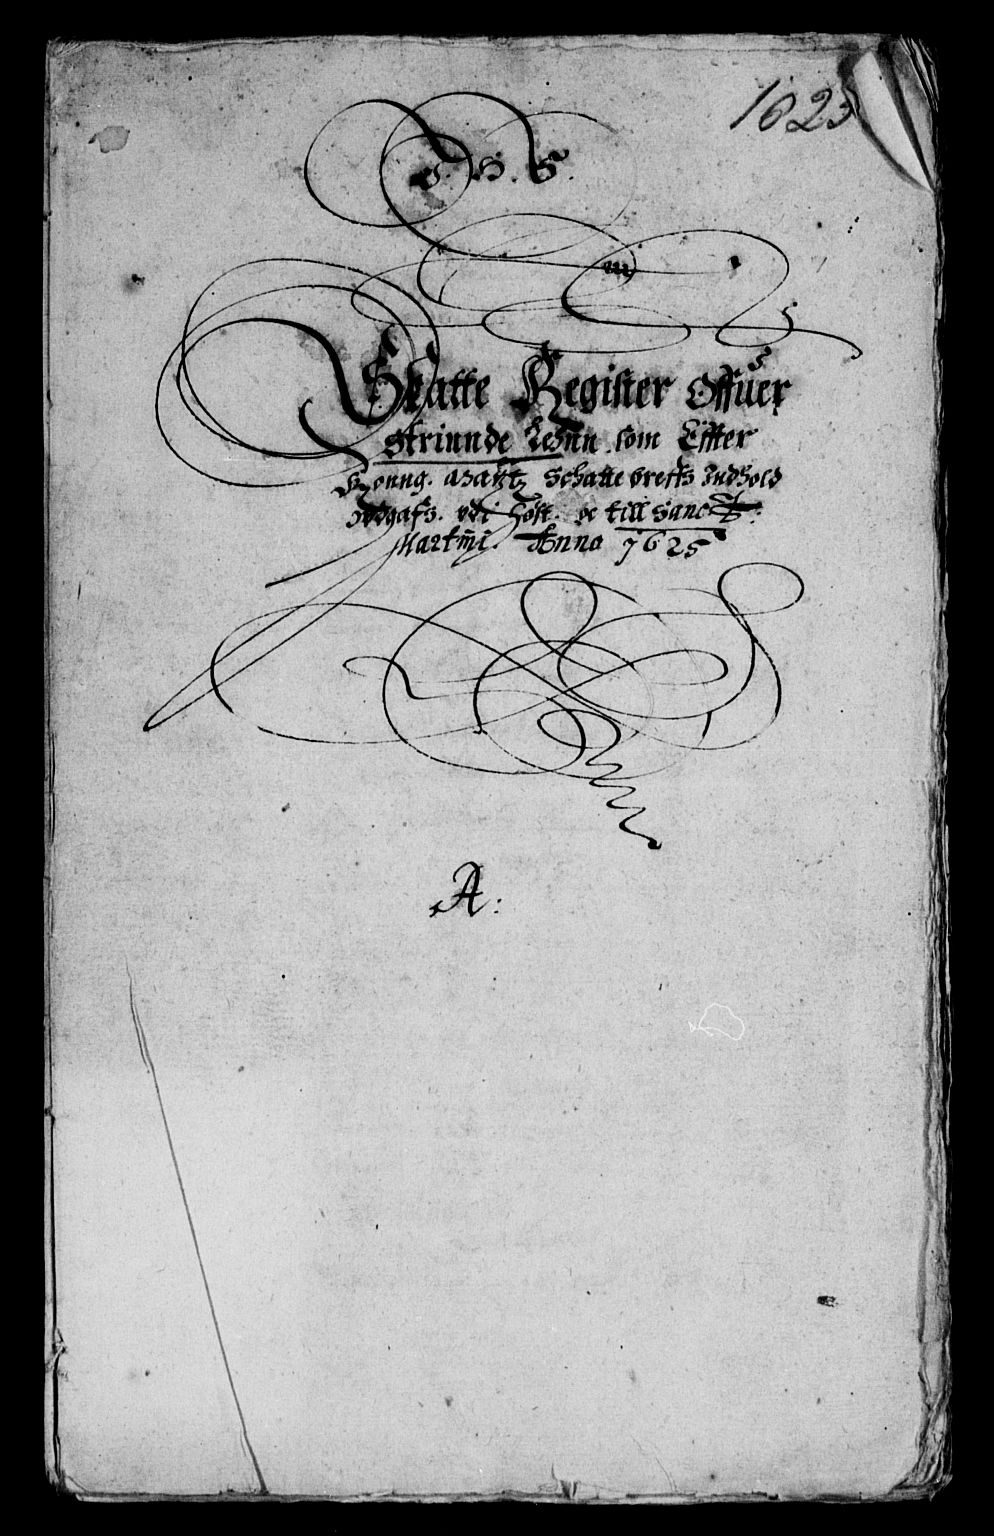 1625
J. H. S.
Skatte Register Offuer
strinnde Lehnn som Effter
Konng. Maytz Schatte breffs Indhold
Udgafs. udi Høst. oc till Sanct:
Martini. Anno 1625
A: